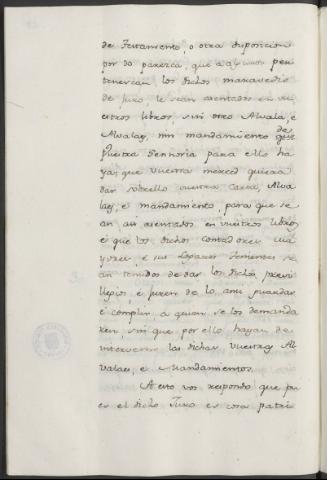 de Testamento, o otra disposicion
por do parezca, que a algunos per
tenescan los dichos maravedis
de juro, le sean asentados en vu
estros libros, sin otro Alvala, é
Alvalaes, nin mandamiento de
Vuestra Senhoria para ello ha
ya; que vuestra merced quiera
dar sobrello vuestra Carta, Alva
laes, é mandamiento, para que se
an asi asentados en vuestros libros,
é que los dichos contadores ma
yores, é sus Logares Tenientes se
an tenidos de dar los dichos previ
llegios, é juren de lo ansi guardar
é complir, á quien se los demanda
ren, sin que por ello hayan de
intervenir las dichas vuestras Al
valaes, é Mandamientos.
A esto vos respondo que pu
es el dicho Juro es cosa patri